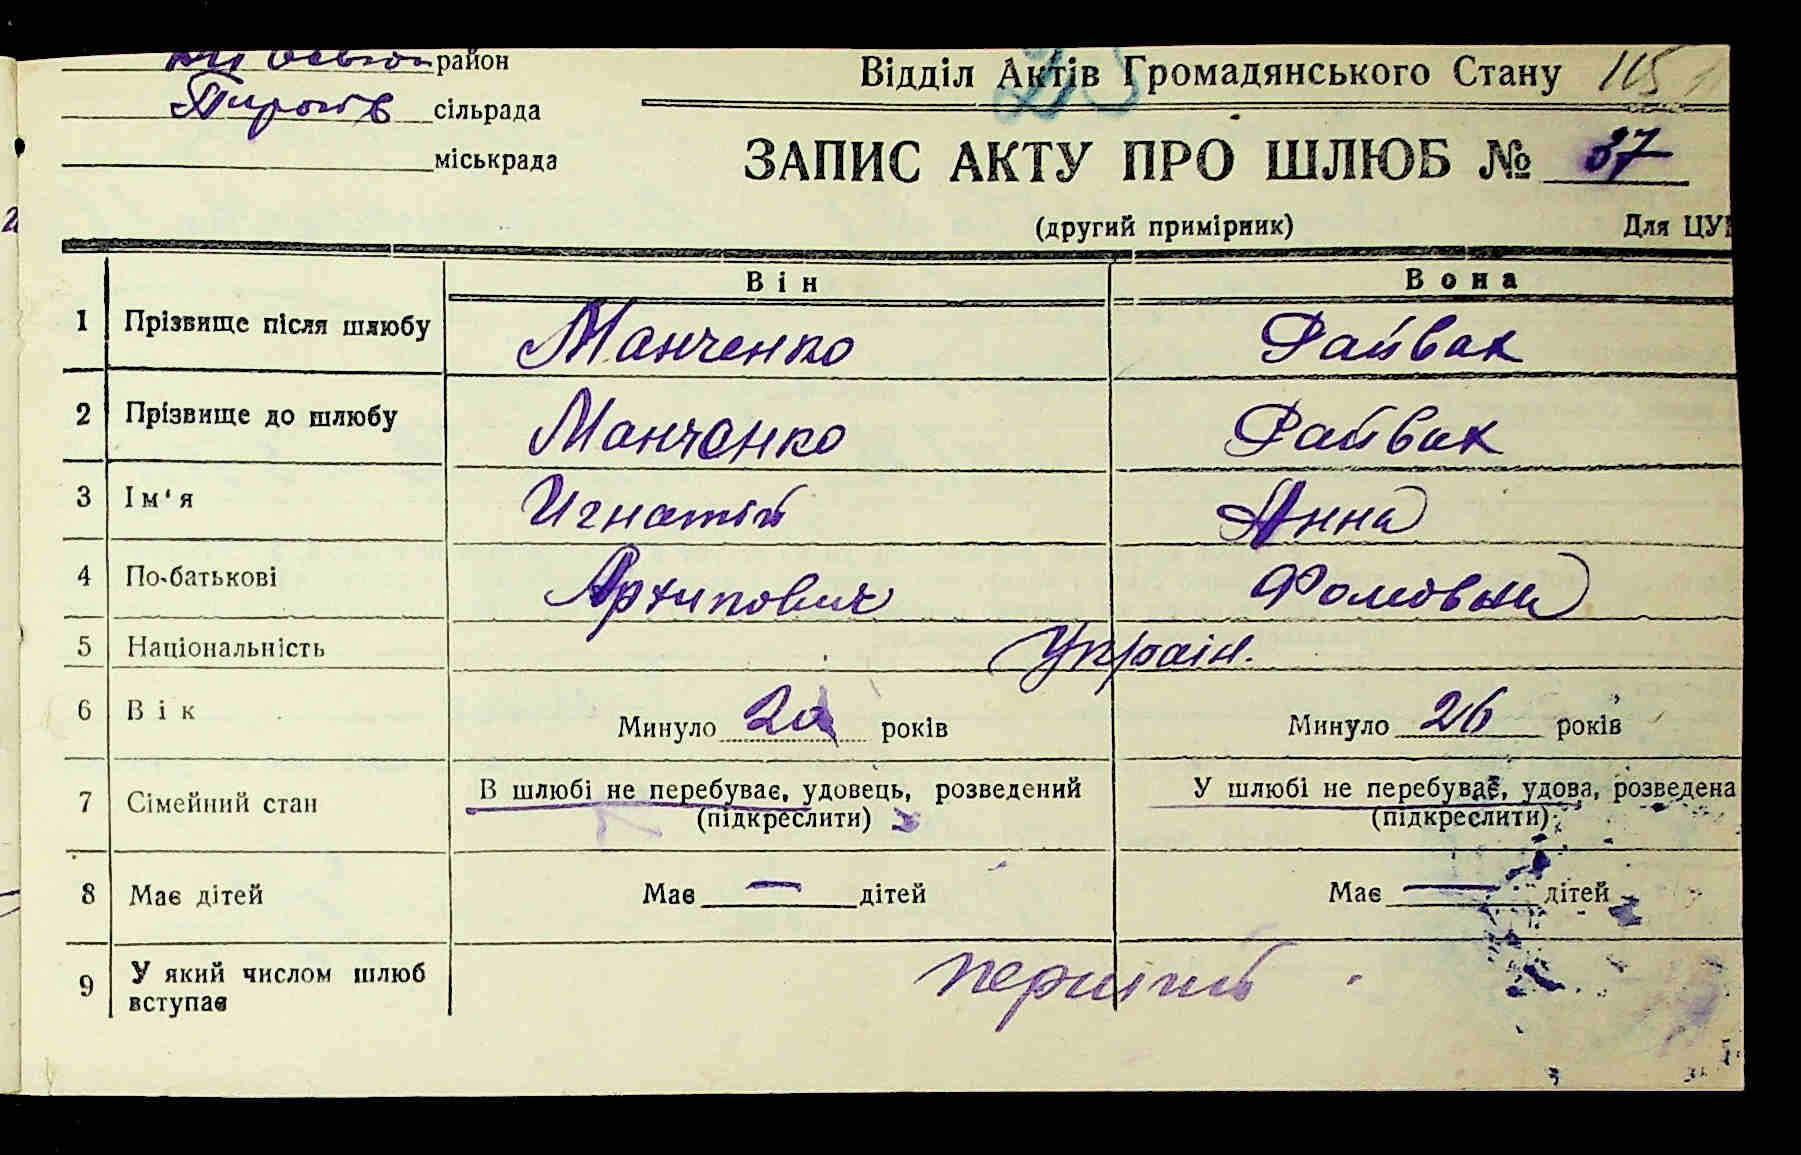 район
Відділ Актів Громадянського Стану 115
Пирогів сільрада
міськрада
ЗАПИС АКТУ ПРО ШЛЮБ № 37
(другий примірник) Для ЦУ
Він Вона
1 Прізвище після шлюбу Манченко Файвак
2 Прізвище до шлюбу Манченко Файвак
3 Ім'я Игнатій Анна
4 По-батькові Архипович Фомовна
5 Національність Украін.
6 Вік Минуло років Минуло 26 років
7 Сімейний стан В шлюбі не перебуває, удовець, розведений У шлюбі не перебуває, удова, розведена
(підкреслити) (підкреслити)
8 Має дітей Має — дітей Має — дітей
9 У який числом шлюб
вступає
першій